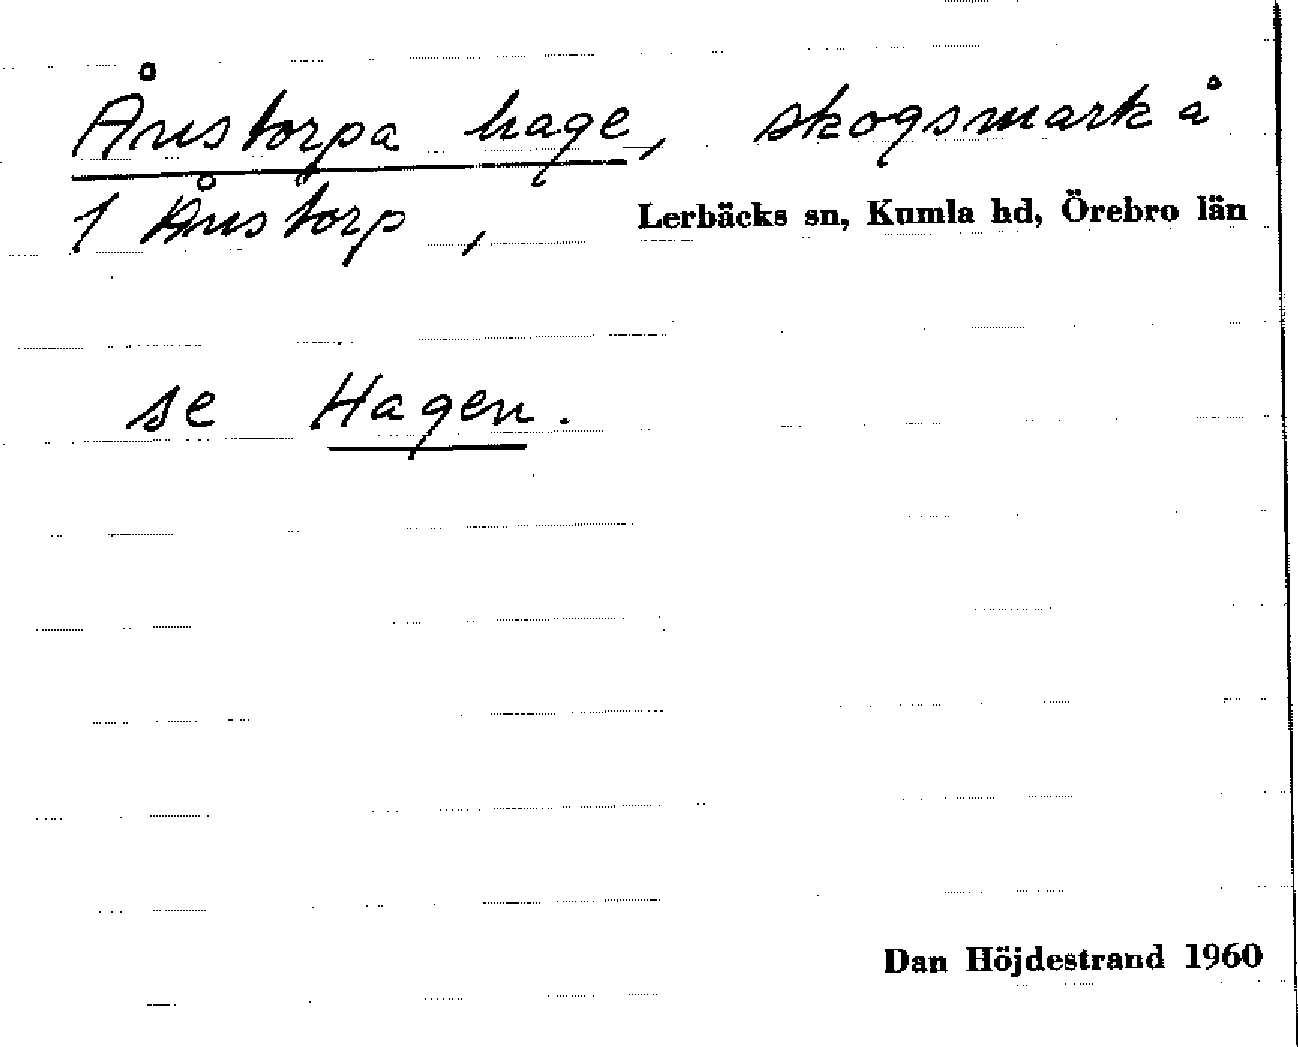 Ånstorpa hage, skogsmark å
1 Ånstorp, Lerbäcks sn, Kumla hd, Örebro län
se Hagen.
Dan Höjdestrand 1960